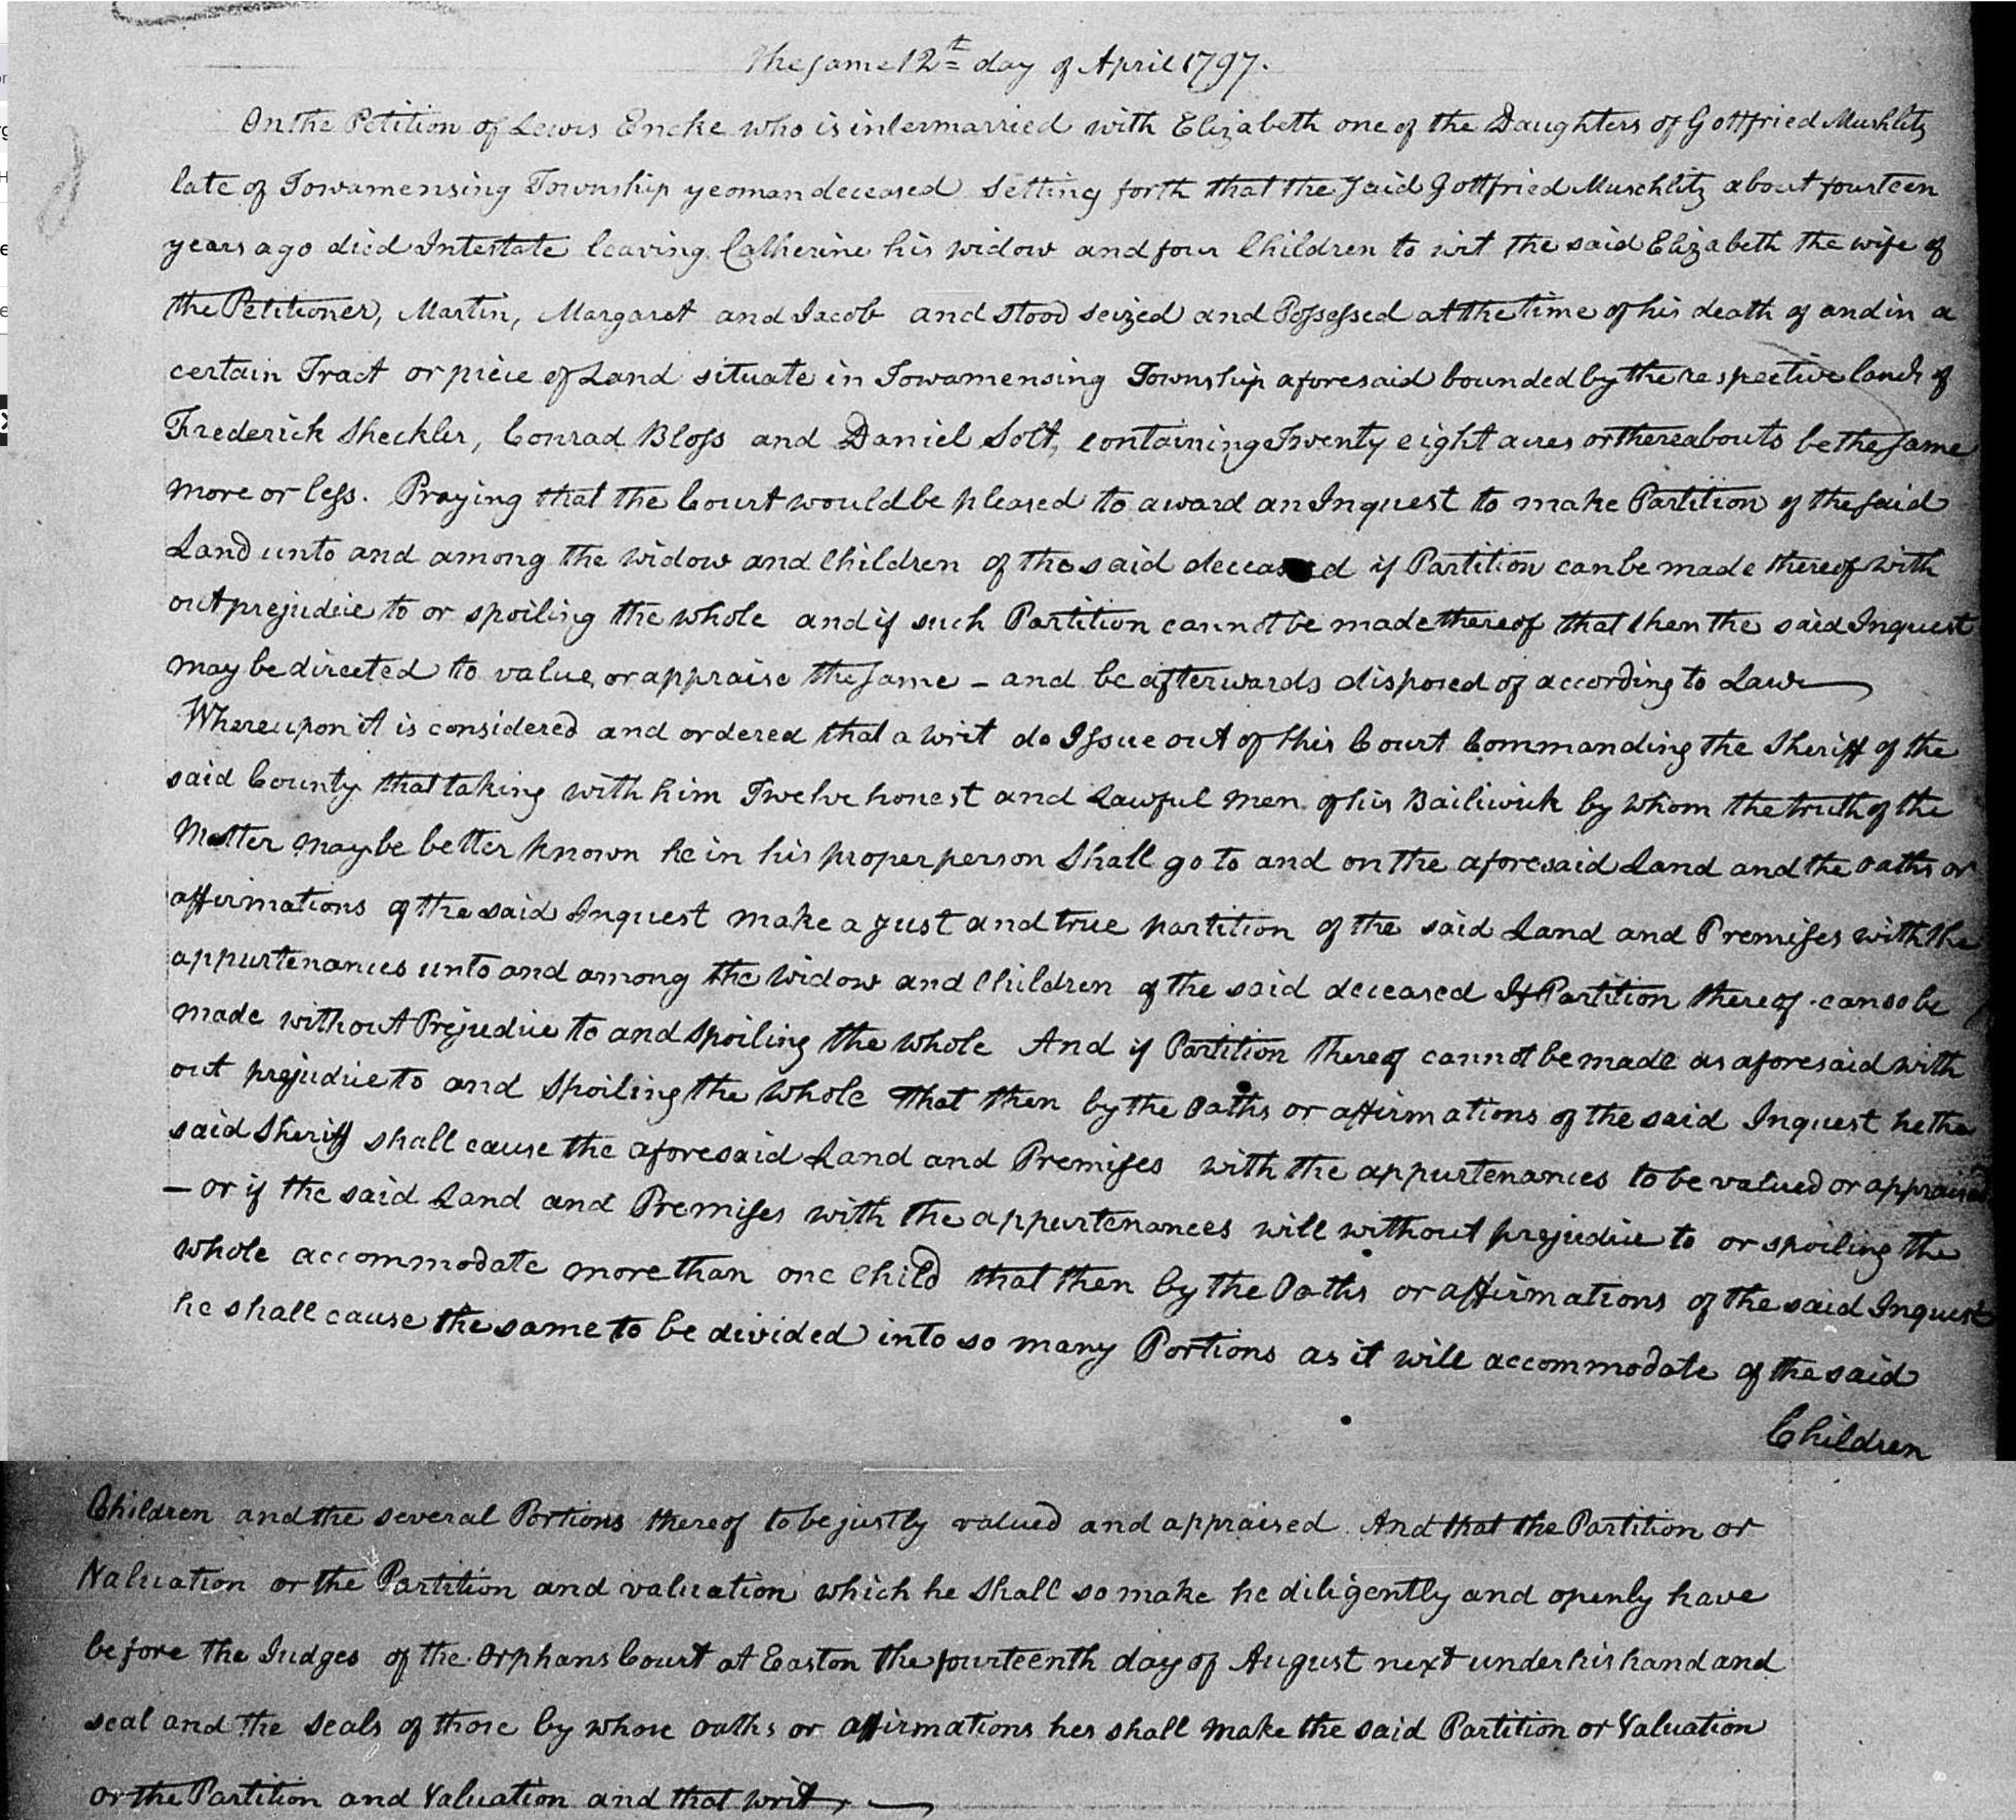 The same 12th day of April 1797.
On the Petition of Lewis Encke who is intermarried with Elizabeth one of the Daughters of Gottfried Mushlitz
late of Towamensing Township yeoman deceased Setting forth that the said Gottfried Muschlitz about fourteen
years ago died Intestate leaving Catherine his widow and four Children to wit the said Elizabeth the wife of
the Petitioner, Martin, Margaret and Jacob and stood seized and Possessed at the time of his death of and in a
certain Tract or piece of Land situate in Towamensing Township aforesaid bounded by the respective lands of
Frederick Sheckler, Conrad Bloss and Daniel Solt, containing Twenty eight acres or thereabouts be the same
more or less. Praying that the Court would be pleased to award an Inquest to make Partition of the said
Land unto and among the widow and Children of the said deceased if Partition can be made thereof with
out prejudice to or spoiling the whole and if such Partition cannot be made thereof that then the said Inquest
may be directed to value or appraise the same – and be afterwards disposed of according to Law
Whereupon it is considered and ordered that a writ do Issue out of this Court Commanding the Sheriff of the
said County that taking with him Twelve honest and Lawful men of his Bailiwick by whom the truth of the
Matter may be better known he in his proper person Shall go to and on the aforesaid Land and the oaths or
affirmations of the said Inquest make a just and true partition of the said Land and Premises with the
appurtenances unto and among the widow and Children of the said deceased If Partition thereof can so be
made without Prejudice to and spoiling the whole And if Partition thereof cannot be made as aforesaid with
out prejudice to and spoiling the whole that then by the Oaths or affirmations of the said Inquest he the
said Sheriff shall cause the aforesaid Land and Premises with the appurtenances to be valued or appraised
– or if the said Land and Premises with the appurtenances will without prejudice to or spoiling the
whole accommodate more than one Child that then by the Oaths or affirmations of the said Inquest
he shall cause the same to be divided into so many Portions as it will accommodate of the said
Children
Children and the several Portions thereof to be justly valued and appraised And that the Partition or
Valuation or the Partition and valuation which he shall so make he diligently and openly have
before the Judges of the Orphans Court at Easton the fourteenth day of August next under his hand and
seal and the seals of those by whose oaths or affirmations hes shall make the said Partition or Valuation
or the Partition and Valuation and that writ,